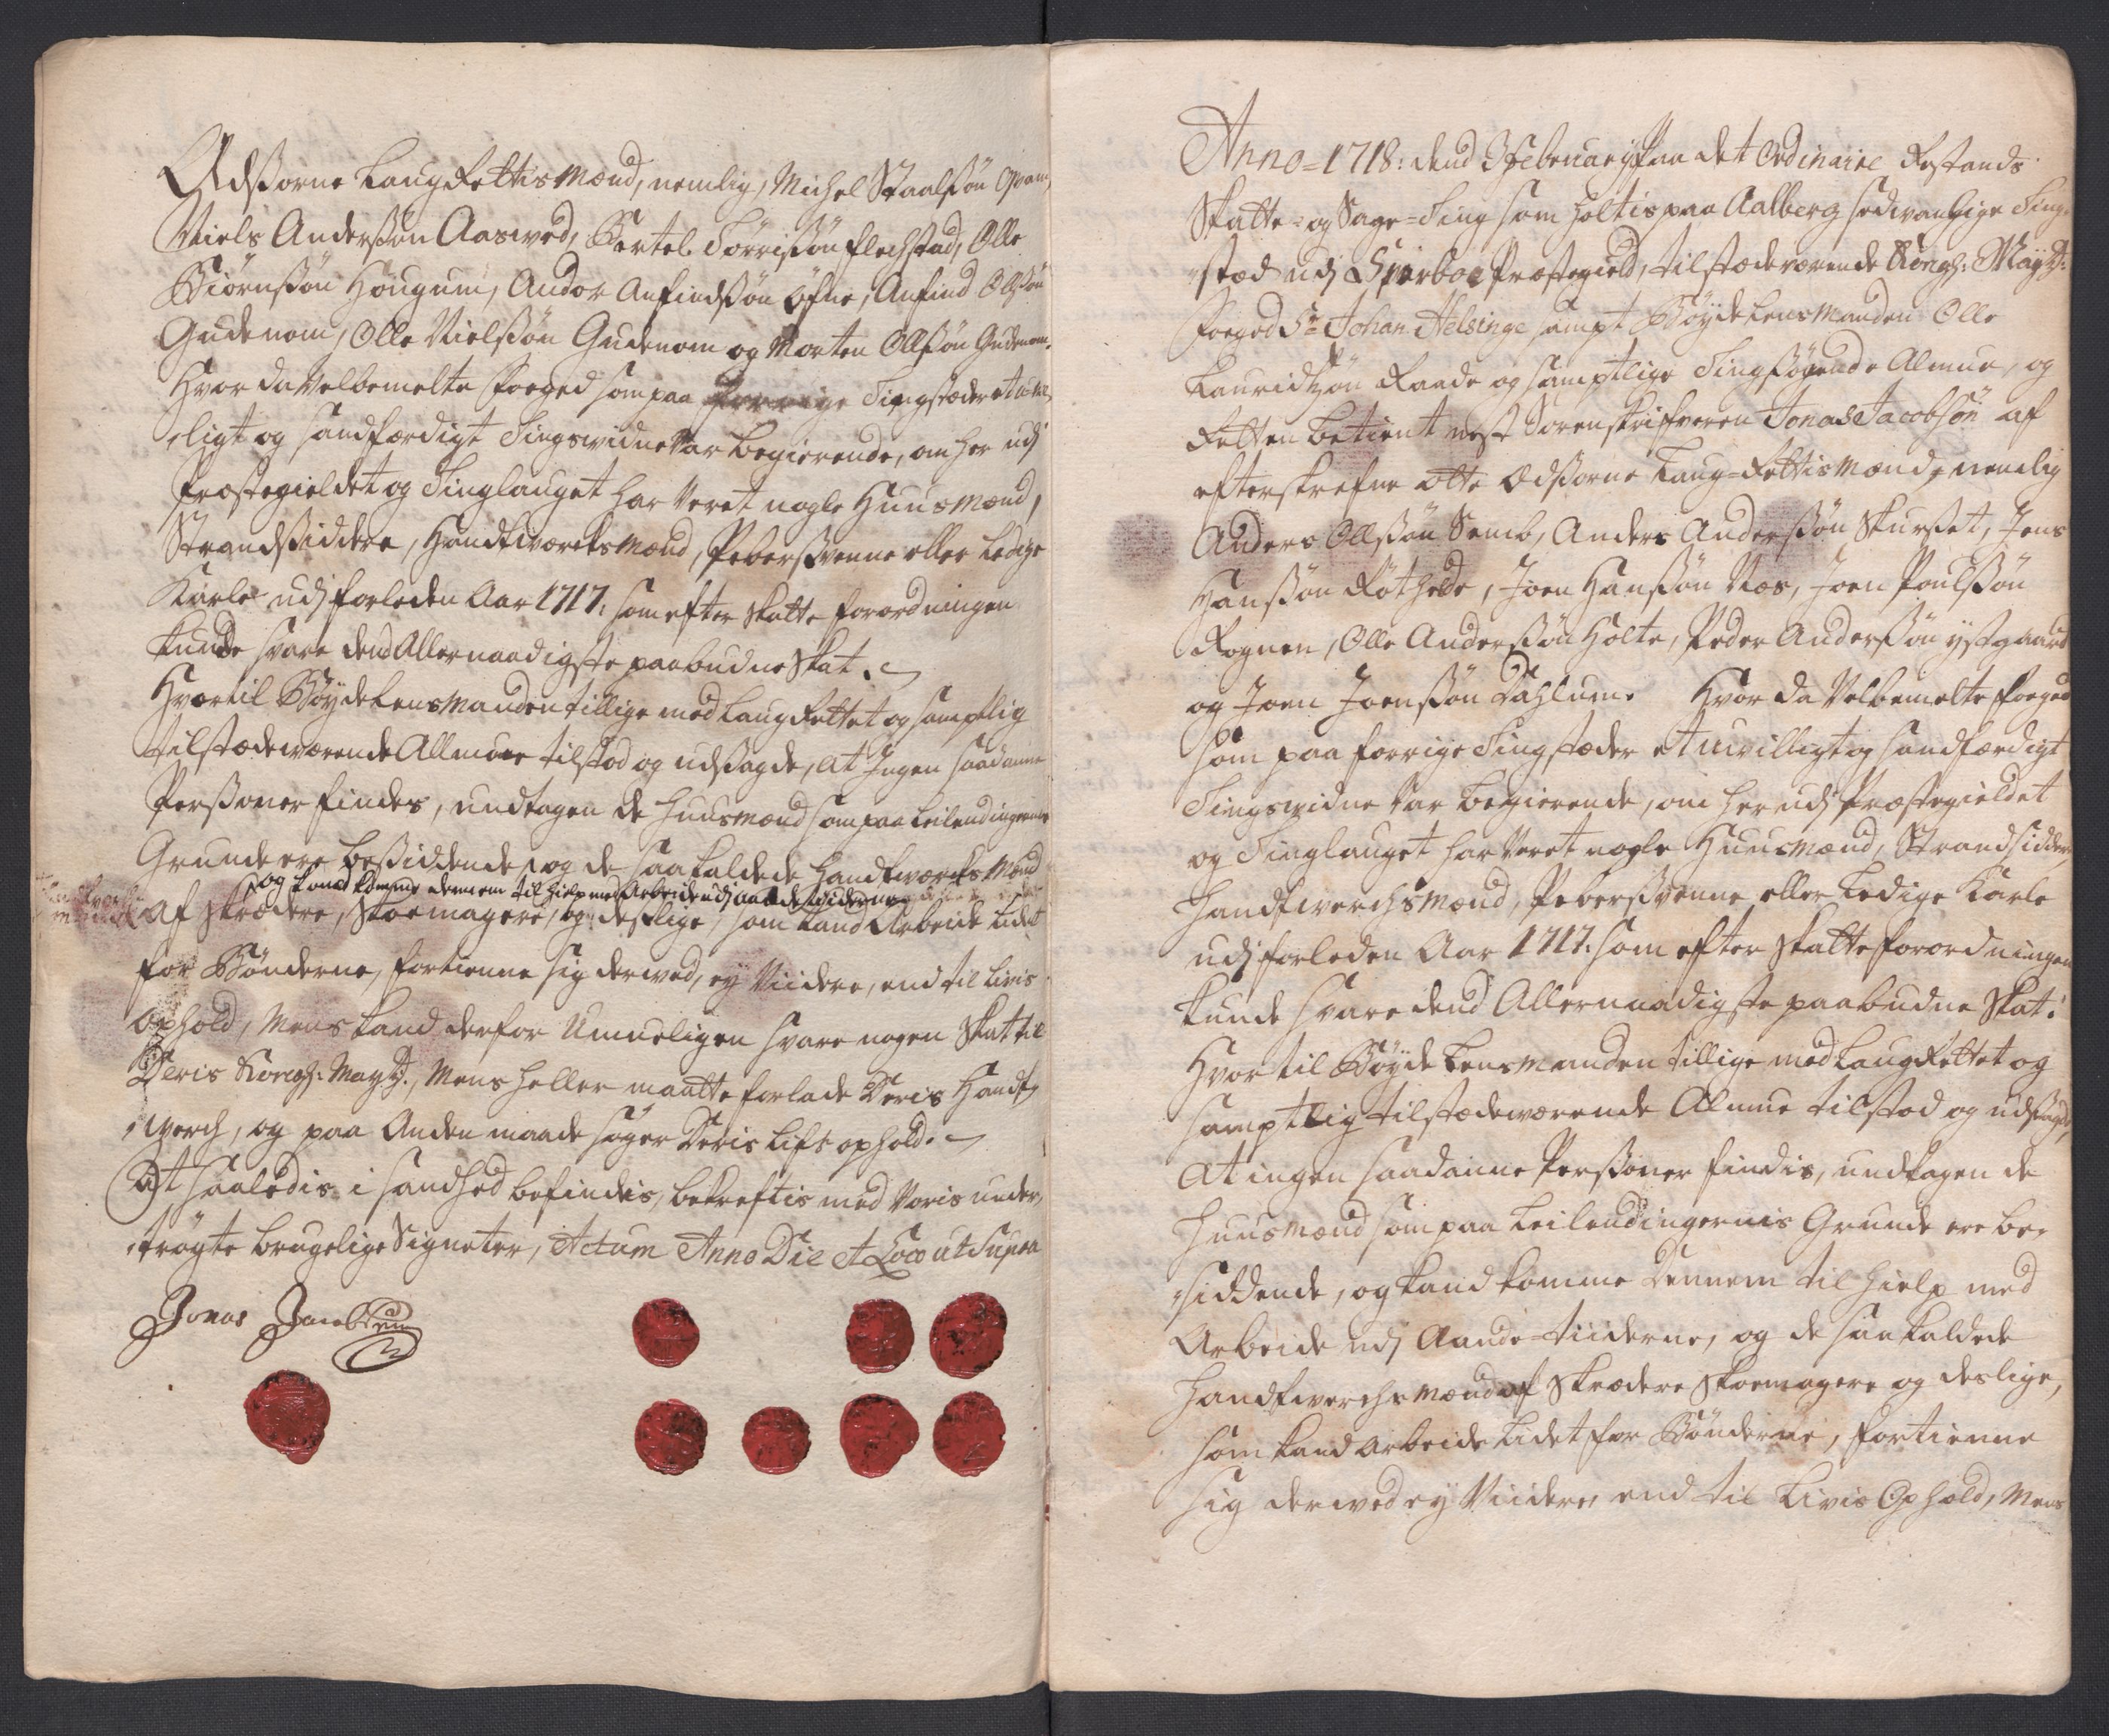 Edsorne Laug Rettis Mænd, nemlig, Michel Staalsøn Opam,
Niels Andersøn Aasved, Bertel Tørrisøn flechstad, Olle
Biørnsøn Hougum, Andor Anfindsøn Øfne, Anfind Olsøn
Gudenom, Olle Nielsøn Gudenom og Morten Olsøn Gudenom.
Hvor da Velbemelte Foeged som paa forrige Tingstæder et uvil
ligt og sandfærdigt Tingsvidne var begierende, om her udj
Præstegieldet og Tinglauget har veret nogle Huusmænd,
Strandsiddere, Handtværcksmænd, Pebersvenne eller Ledige
Karle udj forleden Aar 1717: som efter Skatte forordningen
kunde svare dend Allernaadigste paabudne Skat.
Hvortil Bøyde Lensmanden tillige med LaugRettet og samptlig
tilstædeværende Allmue tilstod og udsagde, at Ingen saadanne
Personer findes, undtagen de Huusmænd som paa Leilendingernis
Grunde ere besiddende, og de saa kaldede Handtværcks Mænd
og kand komme dennem til hielp med Arbeide udj aande tiiderne
af Skrædere, Skoemagere, og deslige, som kand Arbeide Lidet
for Bønderne, fortienne sig derved, ey Viidere, end til Livis
Ophold, Mens kand derfor Umueligen svare nogen Skat til
Deris Kongh: Mayts., Mens heller maatte forlade Deris Handt
werch, og paa Anden maade søger Deris Lifs ophold.
At saaledis i sandhed befindes, bekreftis med Voris under,
trøgte brugelige Signeter, Actum Anno Die Et Loco ut Supra
Jonas Jacobsøn
Anno 1718: dend 3 Februarij Paa det Ordinaire Restands
Skatte- og Sage-Ting som holtis paa Aalberg sedvanlige Ting-
stæd udj Sparboe Præstegield, tilstædeværende Kongh: Mayts:
Foeged Sr. Johan Helsinge sampt Bøyde Lensmanden Olle
Lauridtzøn Raade og samptlige Tingsøgende Almue, og
Retten betient nest Sorenskrifveren Jonas Jacobsøn af
efterskrefne otte Edsorne Laug-Rettis Mænd, nemlig
Anders Olsøn Semb, Anders Andersøn Skurset, Jens
Hansøn Røthede, Joen Hansøn Næs, Joen Poulsøn
Rognen, Olle Andersøn Holte, Peder Andersøn ystgaard
og Joen Joensøn Dahlum. Hvor da Velbemelte foeged
som paa forrige Tingstæder et uvilligt og sandfærdigt
Tingsvidne var begierende, om her udj Præstegieldet
og Tinglauget har veret nogle Huusmænd, Strandsiddere,
Handtwerchsmænd, Pebersvenne eller Ledige Karle
udj forleden Aar 1717: som efter Skatte forordningen
kunde svare dend Allernaadigste paabudne Skat:
Hvortil Bøyde Lensmanden tillige med LaugRettet og
samptlig tilstædeværende Almue tilstod og udsagde,
At ingen saadanne Personer findis, undtagen de
Huusmænd som paa Leilendingernis Grunde ere be-
siddende, og kand komme dennem til hielp med
Arbeide udj Aande-tiiderne, og de saa kaldede
Handtwerchsmænd af Skrædere Skoemagere og deslige,
som kand arbeide Lidet for Bønderne, fortienne
sig derved ey Viidere, end til Livis Ophold, Mens